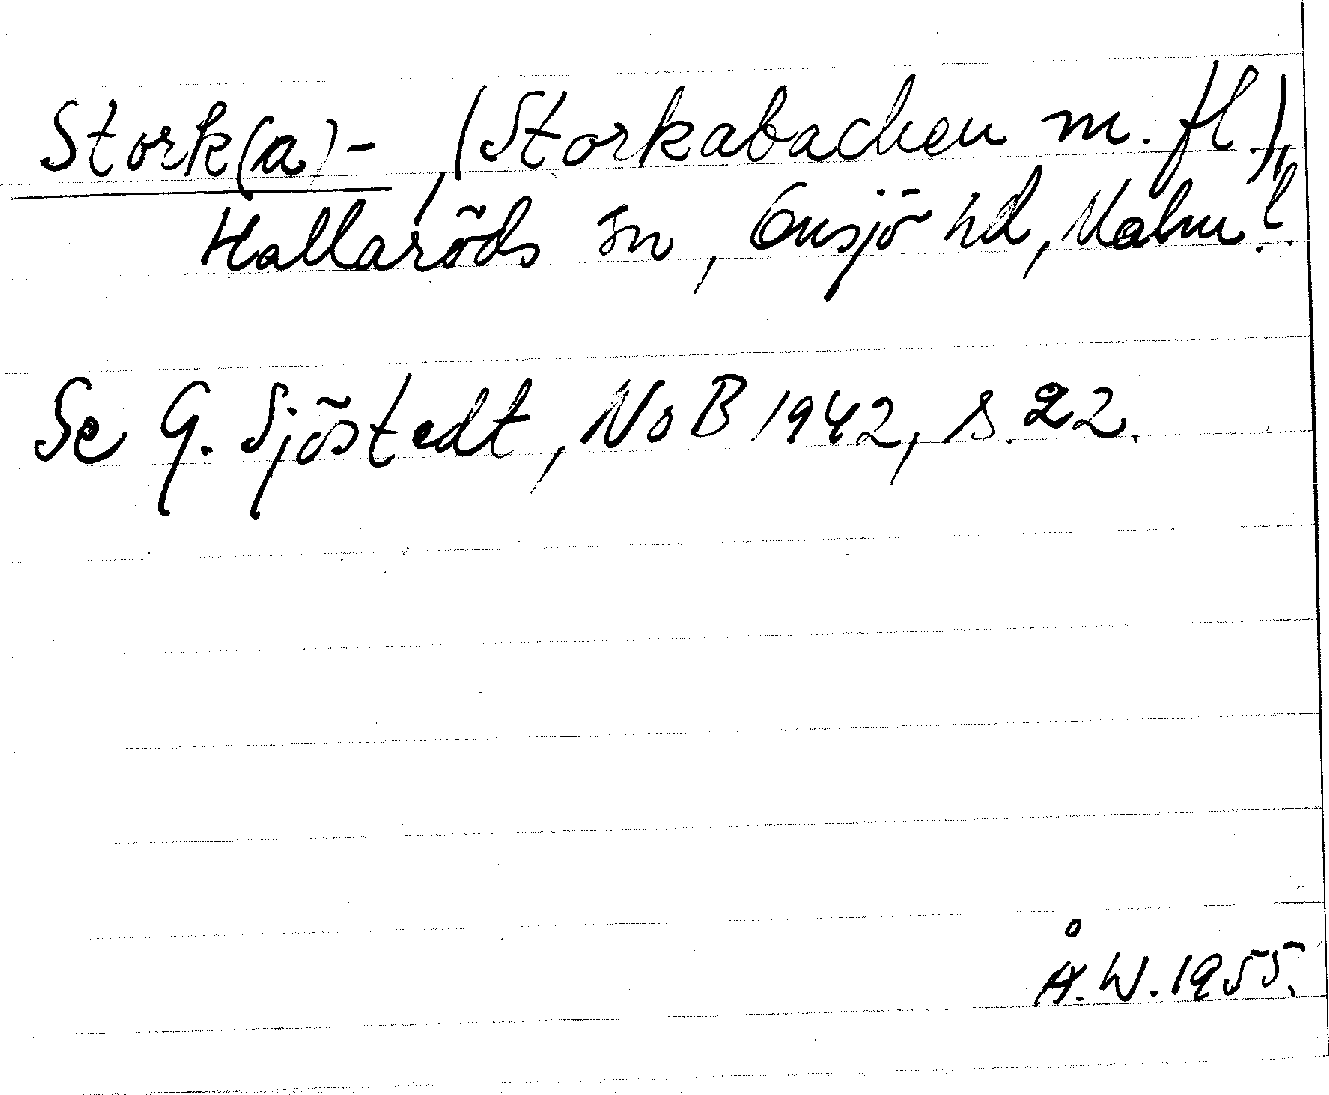 Stork(a)-, (Storkabacken m. fl.),
Hallaröds sn, Onsjö hd, Malm. l.
Se G. Sjöstedt, NoB 1942, s. 22.
Å.W. 1955.